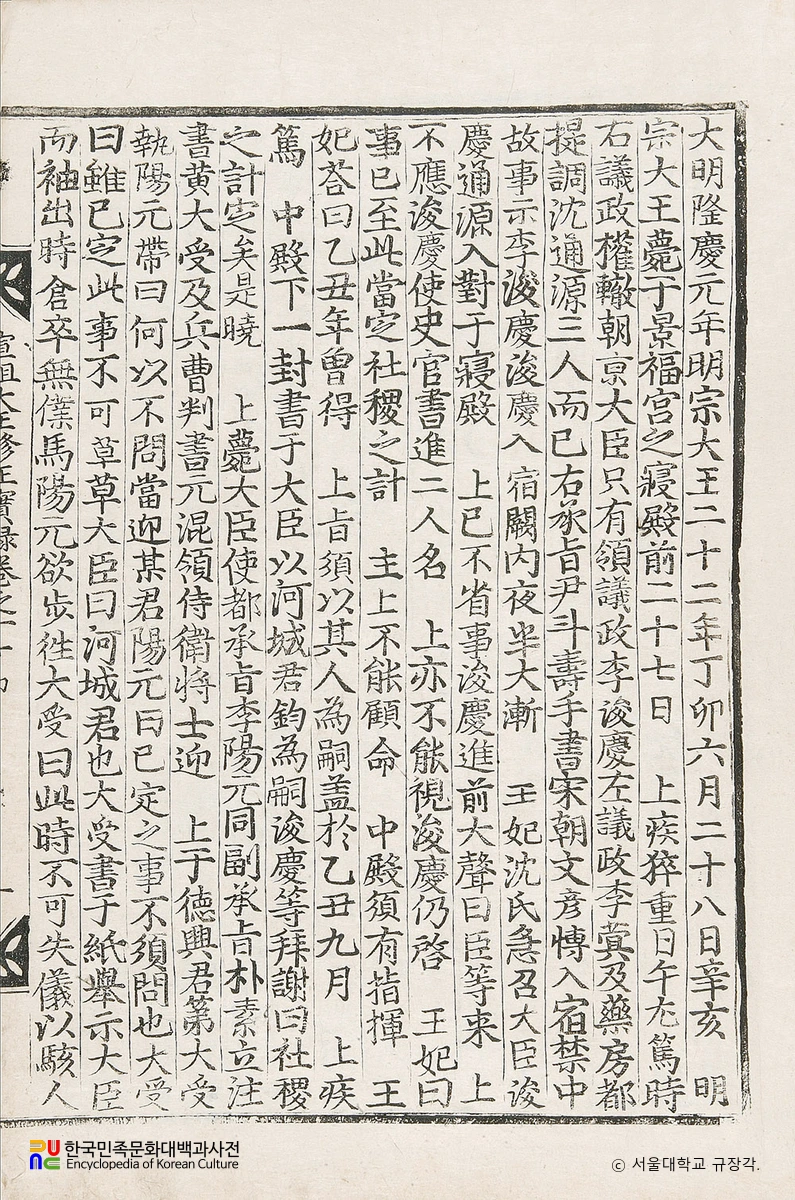 大明隆慶元年明宗大王二十二年丁卯六月二十八日辛亥 明
宗大王薨于景福宮之寢殿前二十七日 上疾猝重日午尤篤時
右議政權轍朝京大臣只有領議政李浚慶左議政李蓂及藥房都
提調沈通源三人而已右承旨尹斗壽手書宋朝文彦愽入宿禁中
故事示李浚慶浚慶入宿闕內夜半大漸 王妃沈氏急召大臣浚
慶通源入對于寢殿 上已不省事浚慶進前大聲曰臣等來 上
不應浚慶使史官書進二人名 上亦不能視浚慶仍啓 王妃曰
事已至此當定社稷之計 主上不能顧命 中殿須有指揮 王
妃荅曰乙丑年曾得 上旨須以其人為嗣盖於乙丑九月 上疾
篤 中殿下一封書于大臣以河城君鈞為嗣浚慶等拜謝曰社稷
之計定矣是曉 上薨大臣使都承旨李陽元同副承旨朴素立注
書黄大受及兵曹判書元混領侍衛將士迎 上于德興君第大受
執陽元帶曰何以不問當迎某君陽元曰已定之事不須問也大受
曰雖已定此事不可草草大臣曰河城君也大受書于紙擧示大臣
而袖出時倉卒無僕馬陽元欲步徃大受曰此時不可失儀以駭人
宣祖大王修正實録卷之一
한국민족문화대백과사전
Encyclopedia of Korean Culture
© 서울대학교 규장각.